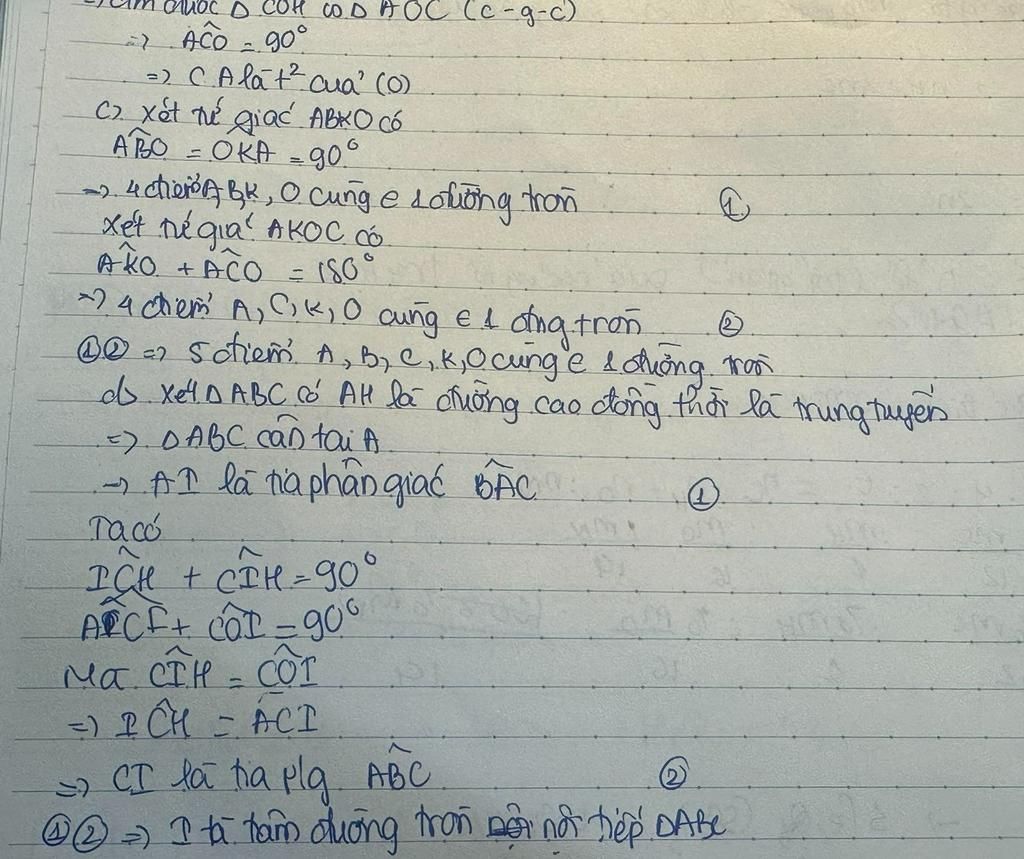 được Δ COH ∽ Δ AOC (c-g-c)
=> AĈO = 90°
=> CA là t² của (O)
c) Xét tứ giác ABKO có
AB̂O = OK̂A = 90°
=> 4 điểm A, B, K, O cùng ∈ 1 đường tròn ①
Xét tứ giác AKOC có
AK̂O + AĈO = 180°
=> 4 điểm A, C, K, O cùng ∈ 1 đng tròn ②
①② => 5 điểm A, B, C, K, O cùng ∈ 1 đường tròn
d) Xét Δ ABC có AH là đường cao đồng thời là trung tuyến
=> Δ ABC cân tại A
-> AI là tia phân giác BÂC ①
Ta có
IĈH + CÎH = 90°
+ CÔI = 90°
Mà CÎH = CÔI
=> IĈH = ACI
=> CI là tia plg AB̂C ②
①② => I là tâm đường tròn nội tiếp ΔABC